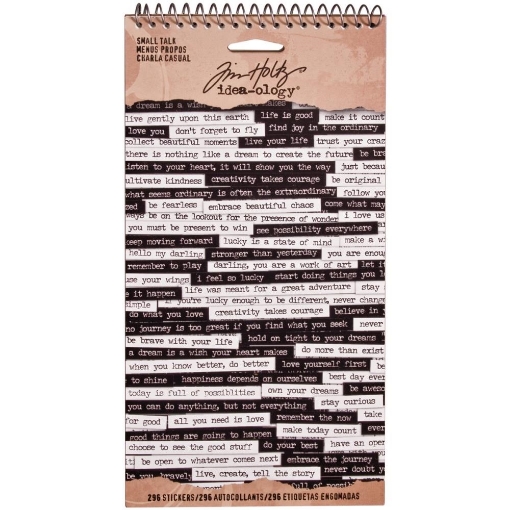 SMALL TALK
MENUS PROPOS
CHARLA CASUAL
Tim Holtz
idea-ology®
a dream is a wish makes
live gently upon this earth life is good make it count
love you don't forget to fly find joy in the ordinary
collect beautiful moments live your life trust your crazy
there is nothing like a dream to create the future be bra
listen to your heart, it will show you the way just becau
ultivate kindness creativity takes courage be original
what seems ordinary is often the extraordinary follow you
sed be fearless embrace beautiful chaos come what may
ways be on the lookout for the presence of wonder i love us
you must be present to win see possibility everywhere
keep moving forward lucky is a state of mind make a wi
hello my darling stronger than yesterday you are enoug
remember to play darling, you are a work of art let it
use your wings i feel so lucky start doing things you lo
e it happen life was meant for a great adventure stay
simple if you're lucky enough to be different, never change
do what you love creativity takes courage believe in y
no journey is too great if you find what you seek never
be brave with your life hold on tight to your dreams
a dream is a wish your heart makes do more than exist
when you know better, do better love yourself first be
to shine happiness depends on ourselves best day ever
today is full of possibilities own your dreams be awes
you can do anything, but not everything stay curious
for good all you need is love remember the now take
make today count ever
good things are going to happen do your best have an open
choose to see the good stuff
it be open to whatever comes next embrace the journey
be bravely live, create, tell the story never doubt yo
full of possib
296 STICKERS/296 AUTOCOLLANTS/296 ETIQUETAS ENGOMADAS